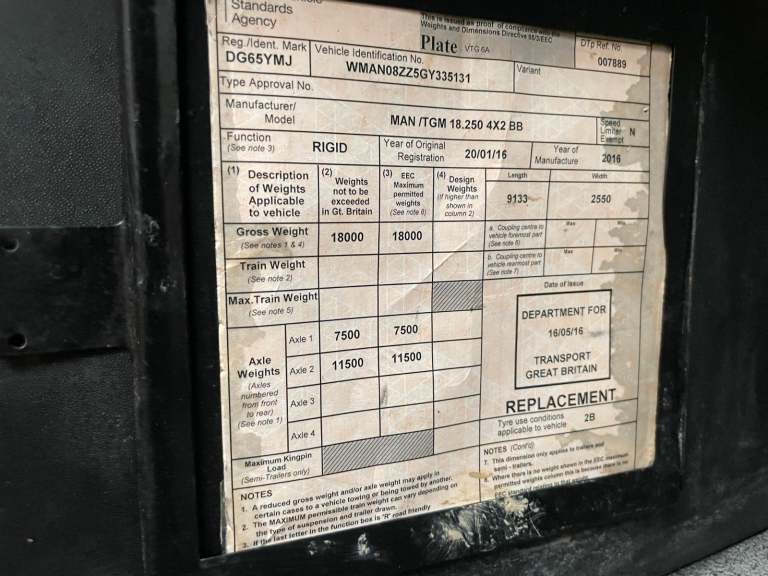 Standards
Agency
This is issued as proof of compliance with the
Weights and Dimensions Directive
Plate VTG 6A
DTp Ref. No.
007889
Reg./Ident. Mark
DG65YMJ
Vehicle Identification No.
WMAN08ZZ5GY335131
Variant
Type Approval No.
Manufacturer/
Model
MAN /TGM 18.250 4X2 BB
Speed
Limiter
Exempt
N
Function
(See note 3)
RIGID
Year of Original
Registration
20/01/16
Year of
Manufacture
2016
(1) Description
of Weights
Applicable
to vehicle
(2) Weights
not to be
exceeded
in Gt. Britain
(3) EEC
Maximum
permitted
weights
(See note 6)
(4) Design
Weights
(if higher than
shown in
column 2)
Length
9133
Width
2550
Gross Weight
(See notes 1 & 4)
18000
18000
a. Coupling centre to
vehicle foremost part
(See note 6)
Max
Min
Train Weight
(See note 2)
b. Coupling centre to
vehicle rearmost part
(See note 7)
Max
Min
Max.Train Weight
(See note 5)
Axle
Weights
(Axles
numbered
from front
to rear)
(See note 1)
Axle 1
7500
7500
Axle 2
11500
11500
Axle 3
Axle 4
Maximum Kingpin
Load
(Semi-Trailers only)
Date of Issue
DEPARTMENT FOR
16/05/16
TRANSPORT
GREAT BRITAIN
REPLACEMENT
Tyre use conditions
applicable to vehicle
2B
NOTES
1. A reduced gross weight and/or axle weight may apply in
certain cases to a vehicle towing or being towed by another.
2. The MAXIMUM permissible train weight can vary depending on
the type of suspension and trailer drawn.
3. If the last letter in the function box is 'R' road friendly
NOTES (Cont'd)
7. This dimension only applies to trailers and
semi - trailers.
Where there is no weight shown in the EEC maximum
permitted weights column this is because there is no
EEC